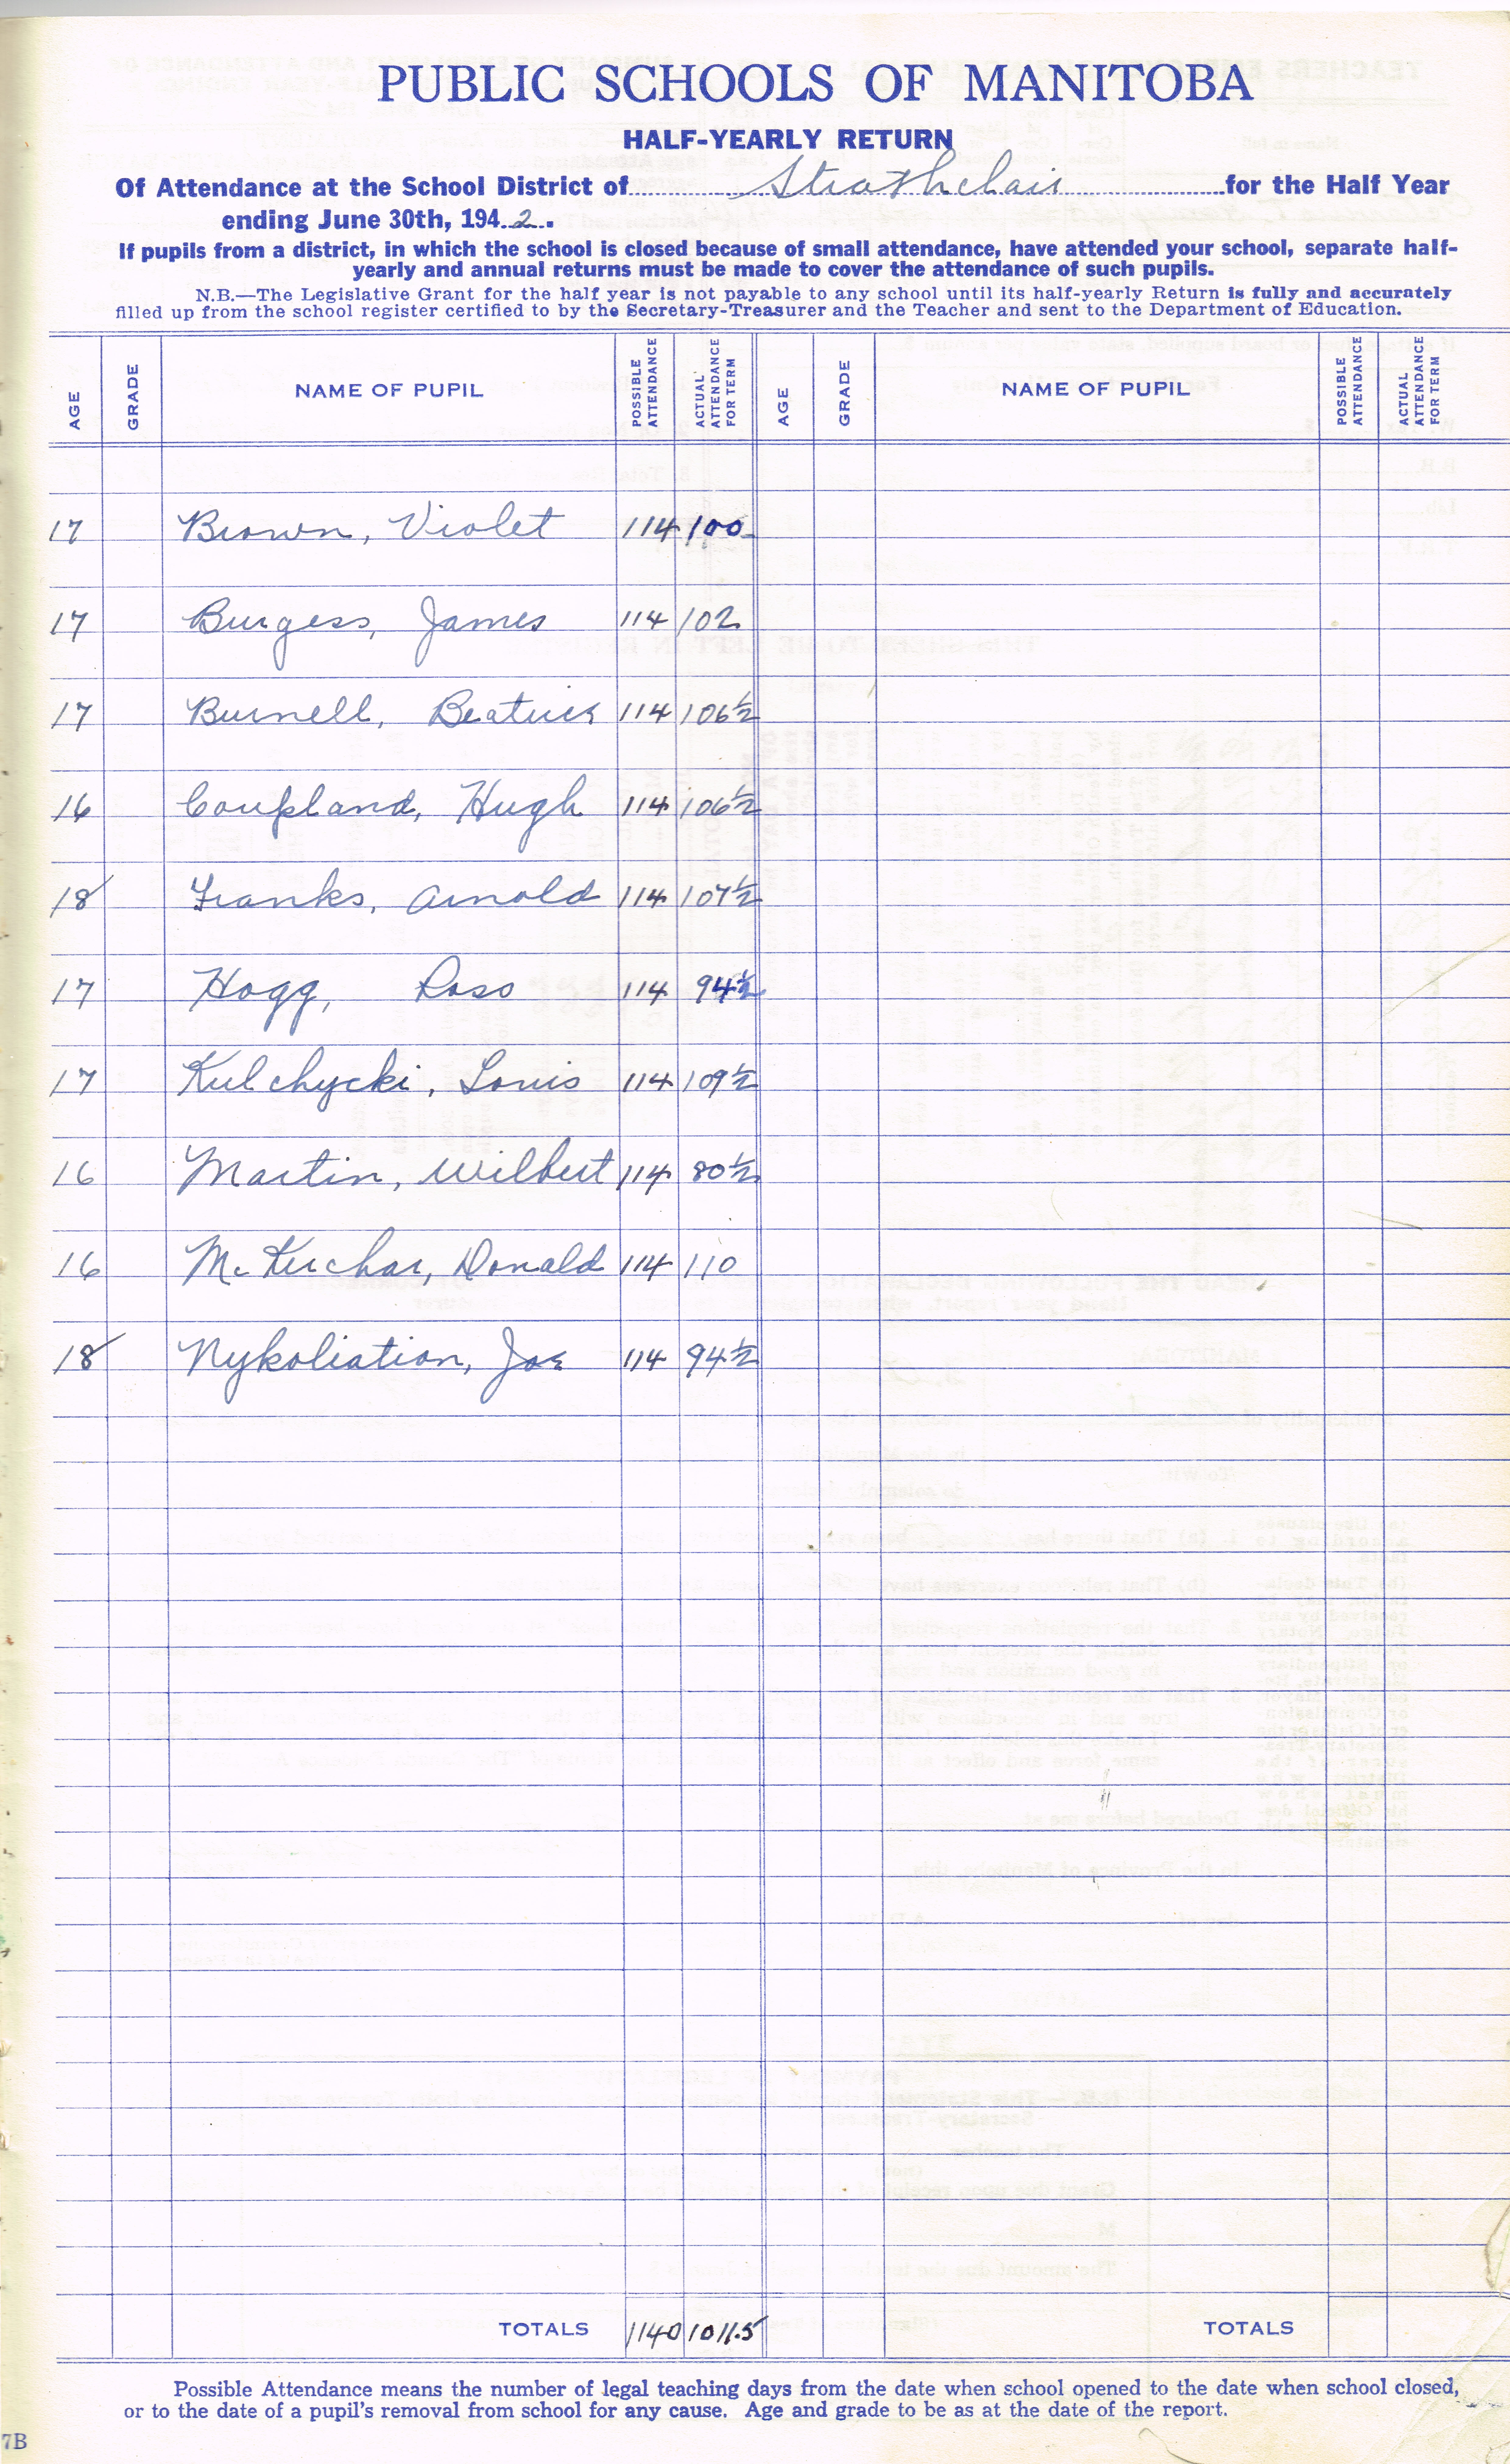 PUBLIC SCHOOLS OF MANITOBA
HALF-YEARLY RETURN
Of Attendance at the School District of Strathclair for the Half Year
ending June 30th, 1942.
If pupils from a district, in which the school is closed because of small attendance, have attended your school, separate half-
yearly and annual returns must be made to cover the attendance of such pupils.
N.B.—The Legislative Grant for the half year is not payable to any school until its half-yearly Return is fully and accurately
filled up from the school register certified to by the Secretary-Treasurer and the Teacher and sent to the Department of Education.
AGE GRADE NAME OF PUPIL POSSIBLE ATTENDANCE ACTUAL ATTENDANCE FOR TERM AGE GRADE NAME OF PUPIL POSSIBLE ATTENDANCE ACTUAL ATTENDANCE FOR TERM
17 Brown, Violet 114 100
17 Burgess, James 114 102
17 Burnell, Beatrice 114 106½
16 Coupland, Hugh 114 106½
18 Franks, Arnold 114 107½
17 Hogg, Ross 114 94½
17 Kulchycki, Louis 114 109½
16 Martin, Wilbert 114 80½
16 McKerchar, Donald 114 110
18 Nykoliation, Joe 114 94½
TOTALS 1140 1011.5 TOTALS
Possible Attendance means the number of legal teaching days from the date when school opened to the date when school closed,
or to the date of a pupil's removal from school for any cause. Age and grade to be as at the date of the report.
7B